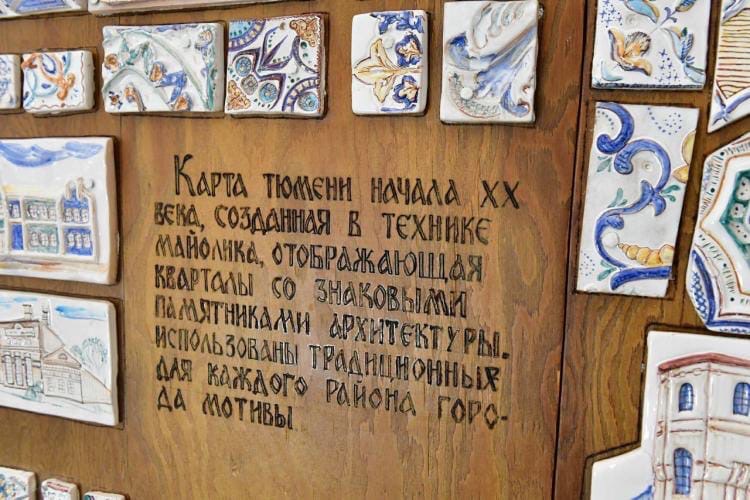 Карта тюмени начала XX
века, созданная в технике
майолика, отображающая
кварталы со знаковыми
памятниками архитектуры.
использованы традиционныя
для каждого района горо-
да мотивы